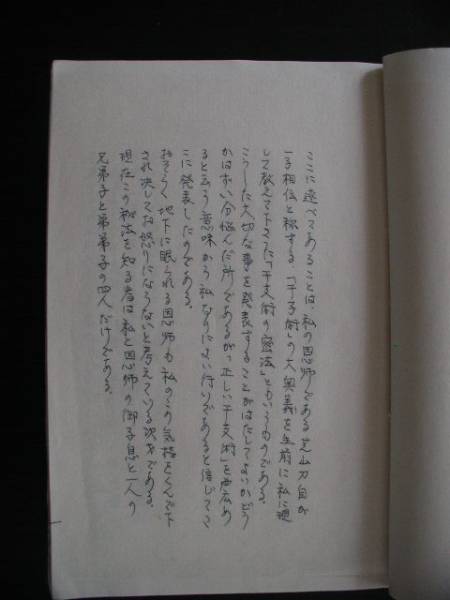 ここに述べてあることは、私の恩師である芝山刀自が
一子相伝と称する「干支術」の大奥義を生前に私に遺
して教えて下さった「干支術の密法」ともいうものである。
こうした大切な事を発表することがはたしてよいかどう
かはずい分悩んだ所であるが、正しい「干支術」を西広め
ると云う意味から私なりによい行いであると信じてここ
に発表したのである。
おそらく地下に眠られる恩師も私のこの気持をくんで下
され決してお怒りにならないと考えている次才である。
現在この秘法を知る者は私と恩師の御子息と一人の
兄弟子と弟弟子の四人だけである。